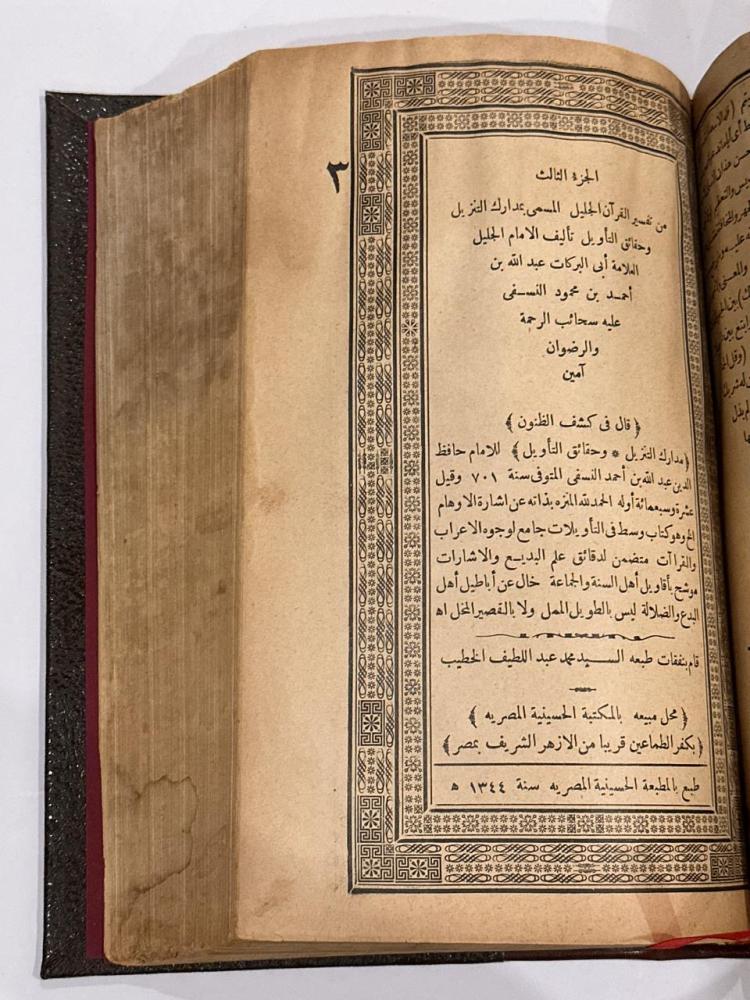 ٣
الجزء الثالث
من تفسير القرآن الجليل المسمى بمدارك التنزيل
وحقائق التأويل تأليف الامام الجليل
العلامة أبى البركات عبد الله بن
أحمد بن محمود النسفى
عليه سحائب الرحمة
والرضوان
آمين
﴿ قال فى كشف الظنون ﴾
﴿ مدارك التنزيل * وحقائق التأويل ﴾ للامام حافظ
الدين عبد الله بن أحمد النسفى المتوفى سنة ٧٠١ وقيل
عشرة وسبعمائة أوله الحمد لله المنزه بذاته عن اشارة الاوهام
الخ وهو كتاب وسط فى التأويلات جامع لوجوه الاعراب
والقراآت متضمن لدقائق علم البديع والاشارات
موشح بأقاويل أهل السنة والجماعة خال عن أباطيل أهل
البدع والضلالة ليس بالطويل الممل ولا بالقصير المخل اه
قام بنفقات طبعه السيد محمد عبد اللطيف الخطيب
﴿ محل مبيعه بالمكتبة الحسينية المصريه ﴾
﴿ بكفر الطماعين قريبا من الازهر الشريف بمصر ﴾
طبع بالمطبعة الحسينية المصريه سنة ١٣٤٤ ه